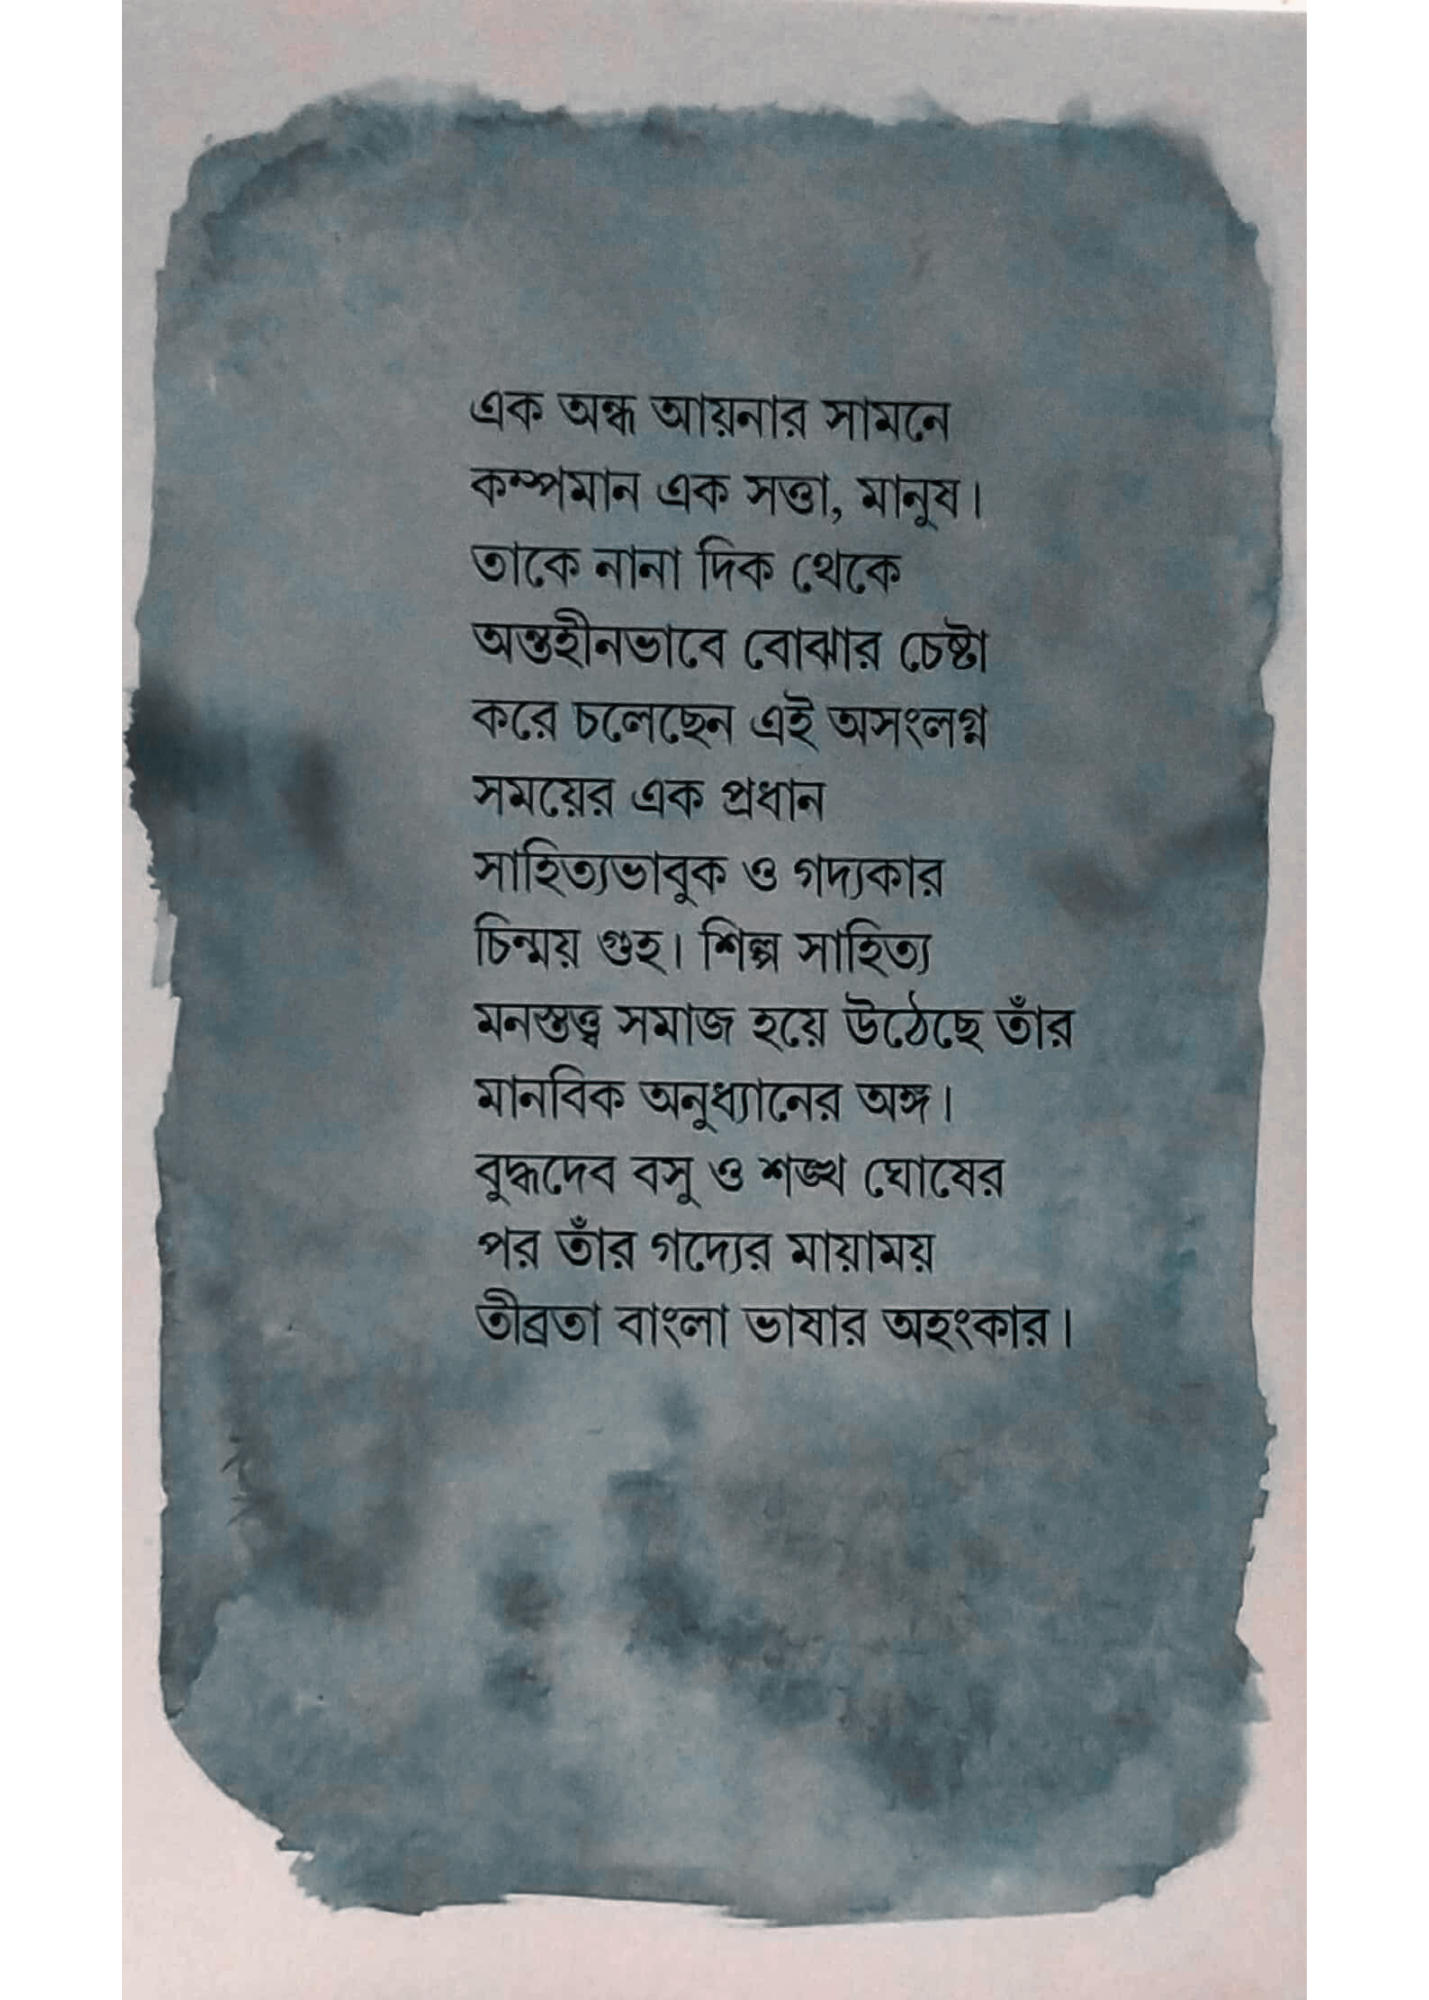 এক অন্ধ আয়নার সামনে
কম্পমান এক সত্তা, মানুষ।
তাকে নানা দিক থেকে
অন্তহীনভাবে বোঝার চেষ্টা
করে চলেছেন এই অসংলগ্ন
সময়ের এক প্রধান
সাহিত্যভাবুক ও গদ্যকার
চিন্ময় গুহ। শিল্প সাহিত্য
মনস্তত্ত্ব সমাজ হয়ে উঠেছে তাঁর
মানবিক অনুধ্যানের অঙ্গ।
বুদ্ধদেব বসু ও শঙ্খ ঘোষের
পর তাঁর গদ্যের মায়াময়
তীব্রতা বাংলা ভাষার অহংকার।